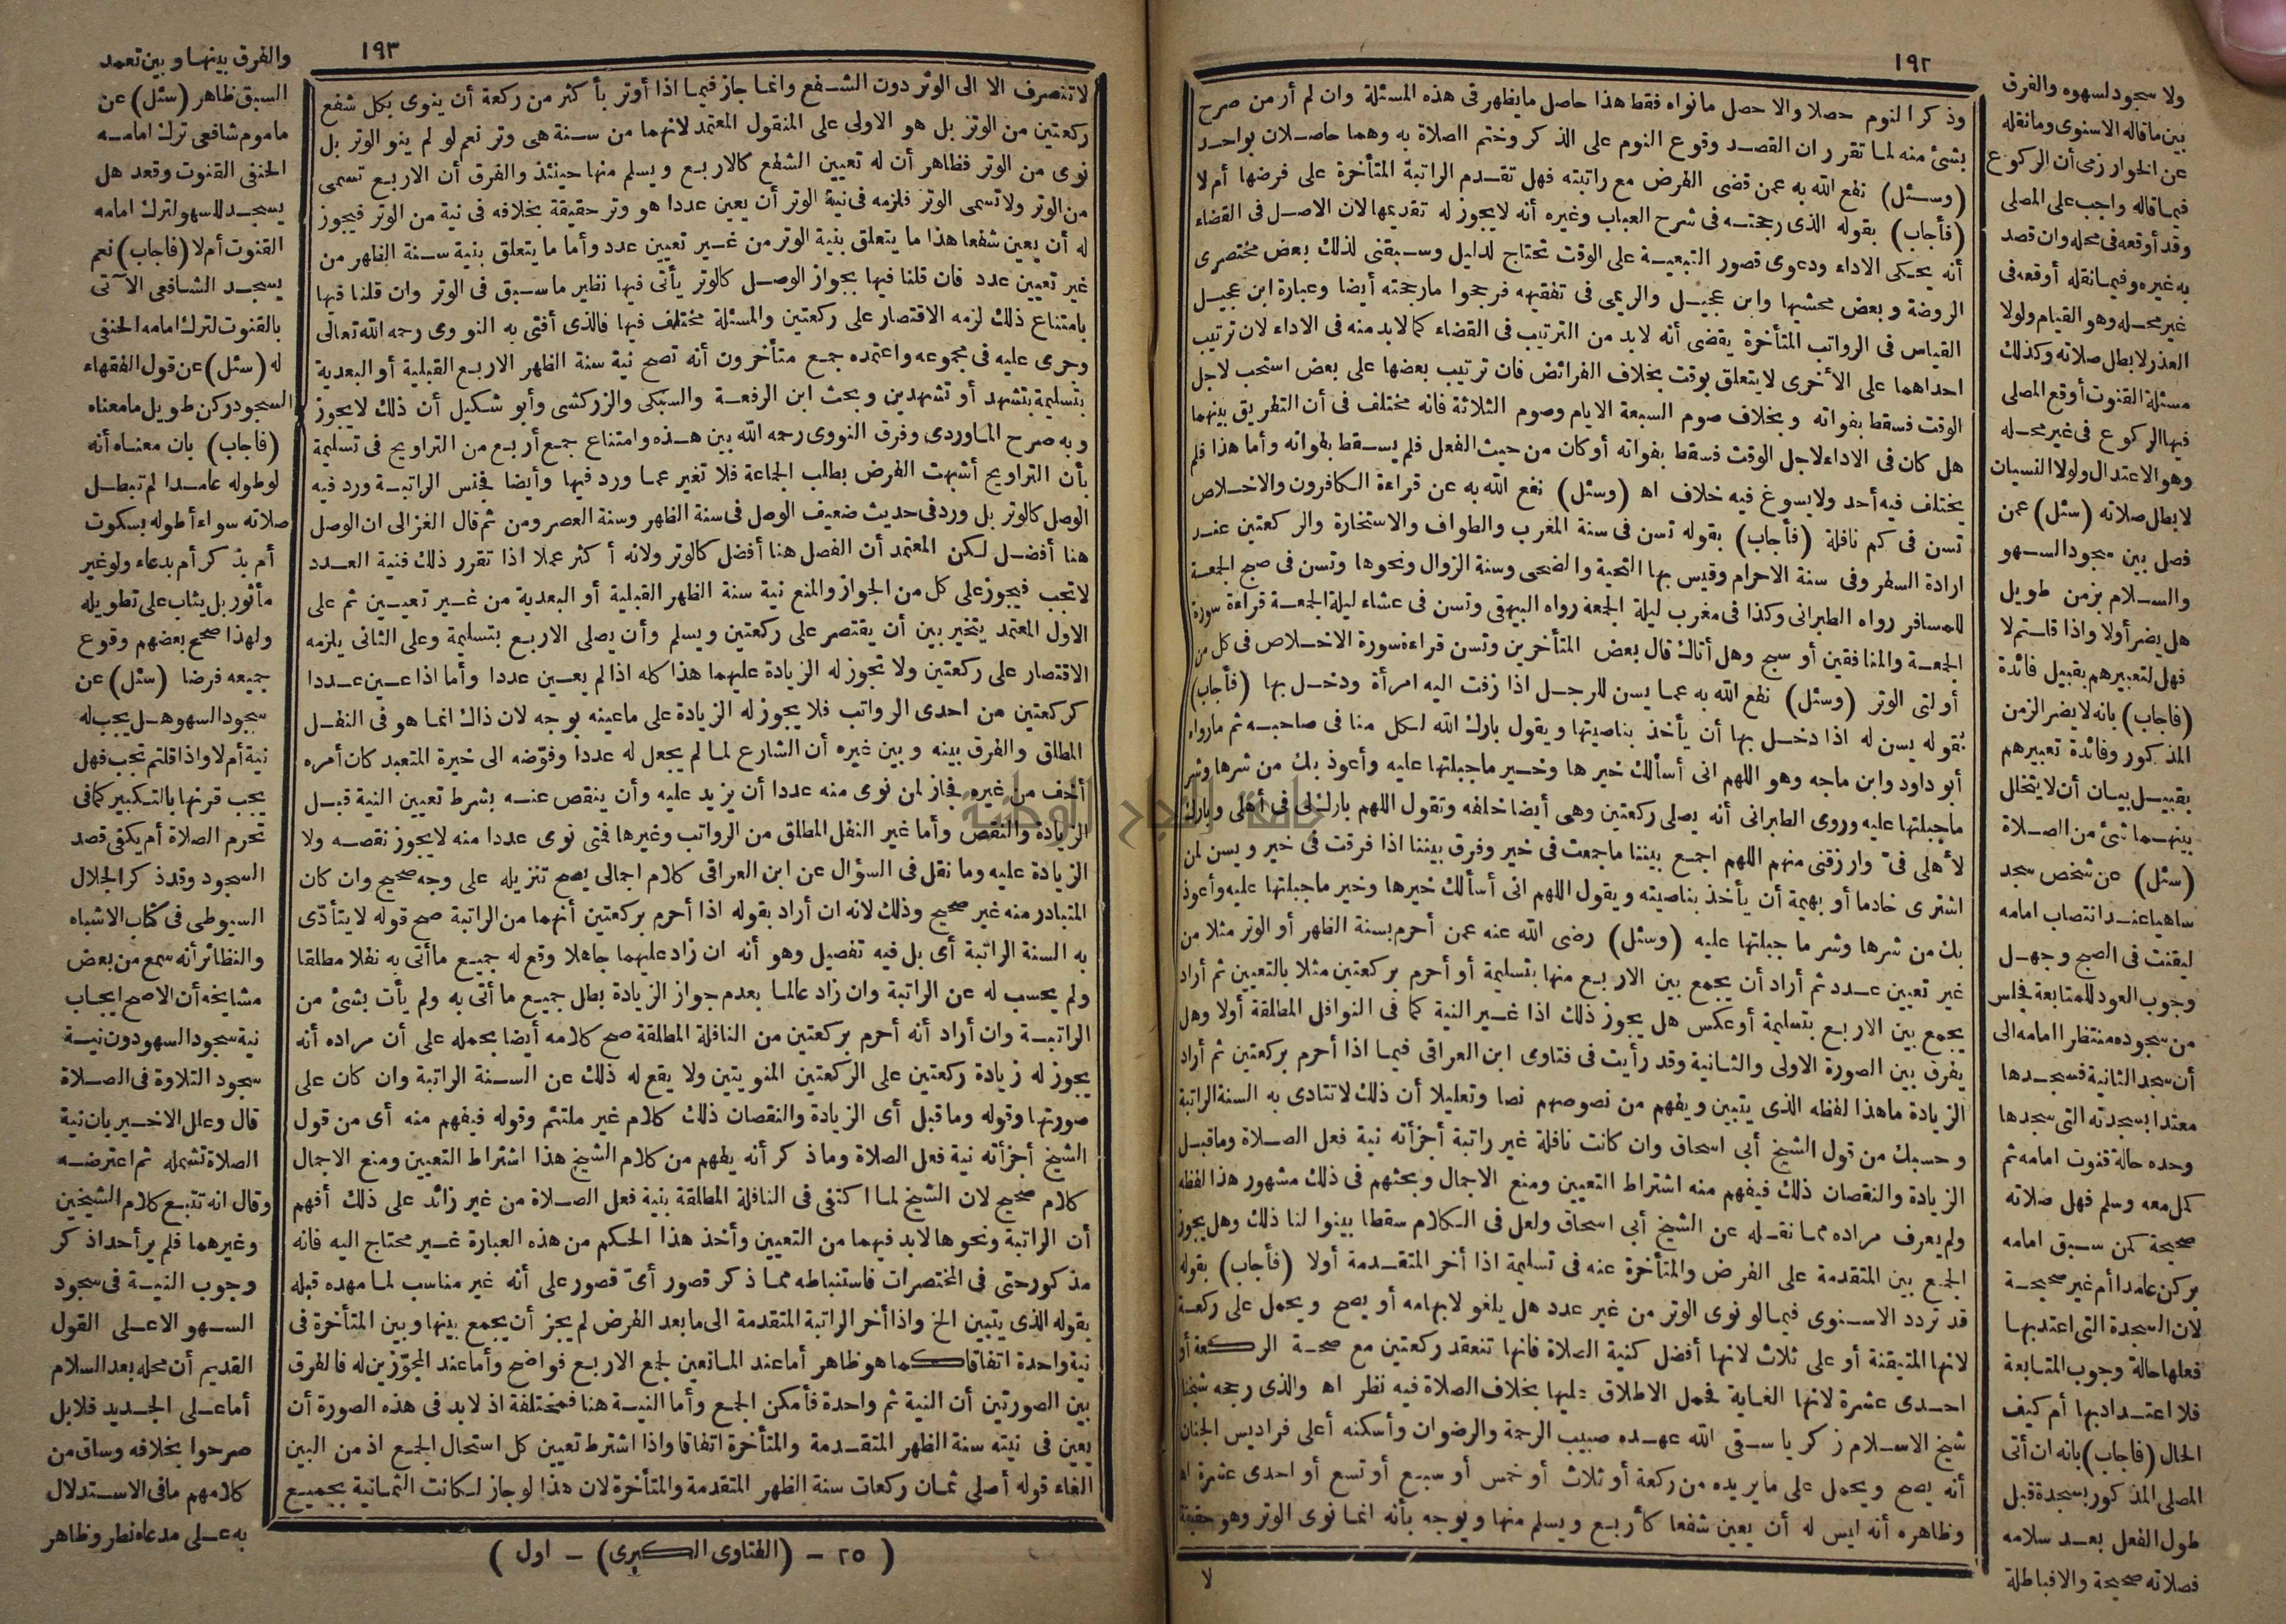 ١٩٢
وذكر النوم حصلا والا حصل ما نواه فقط هذا حاصل ما يظهر فى هذه المسئلة وان لم أر من صرح
بشئ منه لما تقرر ان القصد وقوع النوم على الذكر وختم الصلاة به وهما حاصلان بواحد
(وسئل) نفع الله به عمن قضى الفرض مع راتبته فهل تقدم الراتبة المتأخرة على فرضها أم لا
(فأجاب) بقوله الذى رجحته فى شرح العباب وغيره أنه لا يجوز له تقديمها لان الاصل فى القضاء
أنه يحكى الاداء ودعوى قصور التبعية على الوقت تحتاج لدليل وسبقنى لذلك بعض مختصرى
الروضة وبعض محشيها وابن عجيل والريمى فى تفقيهه فرجحوا ما رجحته أيضا وعبارة ابن عجيل
القياس فى الرواتب المتأخرة يقضى أنه لابد من الترتيب فى القضاء كما لابد منه فى الاداء لان ترتيب
احداهما على الأخرى لا يتعلق بوقت بخلاف الفرائض فان ترتيب بعضها على بعض استحب لاجل
الوقت فسقط بفواته وبخلاف صوم السبعة الايام وصوم الثلاثة فانه مختلف فى أن التفريق بينهما
هل كان فى الاداء لاجل الوقت فسقط بفواته أو كان من حيث الفعل فلم يسقط بفواته وأما هذا فلم
يختلف فيه أحد ولا يسوغ فيه خلاف اه (وسئل) نفع الله به عن قراءة الكافرون والاخلاص
تسن فى كم نافلة (فأجاب) بقوله تسن فى سنة المغرب والطواف والاستخارة والركعتين عند
ارادة السفر وفى سنة الاحرام وقيس بها التحية والضحى وسنة الزوال ونحوها وتسن فى صبح الجمعة
للمسافر رواه الطبرانى وكذا فى مغرب ليلة الجمعة رواه البيهقى وتسن فى عشاء ليلة الجمعة قراءة سورة
الجمعة والمنافقين أو سبح وهل أتاك قال بعض المتأخرين وتسن قراءة سورة الاخلاص فى كل من
أولتى الوتر (وسئل) نفع الله به عما يسن للرجل اذا زفت اليه امرأة ودخل بها (فأجاب)
بقوله يسن له اذا دخل بها أن يأخذ بناصيتها ويقول بارك الله لكل منا فى صاحبه ثم ما رواه
أبو داود وابن ماجه وهو اللهم انى أسألك خيرها وخير ما جبلتها عليه وأعوذ بك من شرها وشر
ما جبلتها عليه وروى الطبرانى أنه يصلى ركعتين وهى أيضا خلفه وتقول اللهم بارك لى فى أهلى وبارك
لأهلى فىّ وارزقنى منهم اللهم اجمع بيننا ما جمعت فى خير وفرق بيننا اذا فرقت فى خير ويسن لمن
اشترى خادما أو بهيمة أن يأخذ بناصيته ويقول اللهم انى أسألك خيرها وخير ما جبلتها عليه وأعوذ
بك من شرها وشر ما جبلتها عليه (وسئل) رضى الله عنه عمن أحرم بسنة الظهر أو الوتر مثلا من
غير تعيين عدد ثم أراد أن يجمع بين الاربع منها بتسليمة أو أحرم بركعتين مثلا بالتعيين ثم أراد
يجمع بين الاربع بتسليمة أو عكس هل يجوز ذلك اذا غير النية كما فى النوافل المطلقة أولا وهل
يفرق بين الصورة الاولى والثانية وقد رأيت فى فتاوى ابن العراقى فيما اذا أحرم بركعتين ثم أراد
الزيادة ما هذا لفظه الذى يتبين ويفهم من نصوصهم نصا وتعليلا أن ذلك لا تتادى به السنة الراتبة
وحسبك من قول الشيخ أبى اسحاق وان كانت نافلة غير راتبة أجزأته نية فعل الصلاة وما قبل
الزيادة والنقصان ذلك فيفهم منه اشتراط التعيين ومنع الاجمال وبحثهم فى ذلك مشهور هذا لفظه
ولم يعرف مراده مما نقله عن الشيخ أبى اسحاق ولعل فى الكلام سقطا بينوا لنا ذلك وهل يجوز
الجمع بين المتقدمة على الفرض والمتأخرة عنه فى تسليمة اذا أخر المتقدمة أولا (فأجاب) بقوله
قد تردد الاسنوى فيما لو نوى الوتر من غير عدد هل يلغو لابهامه أو يصح ويحمل على ركعة
لانها المتيقنة أو على ثلاث لانها أفضل كنية الصلاة فانها تنعقد ركعتين مع صحة الركعة أو
احدى عشرة لانها الغاية فحمل الاطلاق عليها بخلاف الصلاة فيه نظر اه والذى رجحه شيخنا
شيخ الاسلام زكريا سقى الله عهده صبيب الرحمة والرضوان وأسكنه أعلى فراديس الجنان
أنه يصح ويحمل على ما يريده من ركعة أو ثلاث أو خمس أو سبع أو تسع أو احدى عشرة اه
وظاهره أنه ليس له أن يعين شفعا كأربع ويسلم منها ويوجه بأنه انما نوى الوتر وهو حقيقة
لا
ولا سجود لسهوه والفرق
بين ما قاله الاسنوى وما نقله
عن الخوارزمى أن الركوع
فيما قاله واجب على المصلى
وقد أوقعه فى محله وان قصد
به غيره وفيما نقله أوقعه فى
غير محله وهو القيام ولولا
العذر لابطل صلاته وكذلك
مسئلة القنوت أوقع المصلى
فيها الركوع فى غير محله
وهو الاعتدال ولولا النسيان
لابطل صلاته (سئل) عمن
فصل بين سجود السهو
والسلام بزمن طويل
هل يضر أولا واذا قلتم لا
فهل لتعبيرهم بقبيل فائدة
(فاجاب) بانه لا يضر الزمن
المذكور وفائدة تعبيرهم
بقبيل بيان أن لا يتخلل
بينهما شئ من الصلاة
(سئل) عن شخص سجد
ساهيا عند انتصاب امامه
ليقنت فى الصبح وجهل
وجوب العود للمتابعة فجلس
من سجوده منتظرا امامه الى
أن سجد الثانية فسجدها
معتدا بسجدته التى سجدها
وحده حالة قنوت امامه ثم
كمل معه وسلم فهل صلاته
صحيحة كمن سبق امامه
بركن عامدا أم غير صحيحة
لان السجدة التى اعتد بها
فعلها حالة وجوب المتابعة
فلا اعتداد بها أم كيف
الحال (فاجاب) بانه ان أتى
المصلى المذكور بسجدة قبل
طول الفصل بعد سلامه
فصلاته صحيحة والا فباطلة
١٩٣
لا تنصرف الا الى الوتر دون الشفع وانما جاز فيما اذا أوتر بأكثر من ركعة أن ينوى بكل شفع
ركعتين من الوتر بل هو الاولى على المنقول المعتمد لانهما من سنة هى وتر نعم لو لم ينو الوتر بل
نوى من الوتر فظاهر أن له تعيين الشفع كالاربع ويسلم منها حينئذ والفرق أن الاربع تسمى
من الوتر ولا تسمى الوتر فلزمه فى نية الوتر أن يعين عددا هو وتر حقيقة بخلافه فى نية من الوتر فيجوز
له أن يعين شفعا هذا ما يتعلق بنية الوتر من غير تعيين عدد وأما ما يتعلق بنية سنة الظهر من
غير تعيين عدد فان قلنا فيها بجواز الوصل كالوتر يأتى فيها نظير ما سبق فى الوتر وان قلنا فيها
بامتناع ذلك لزمه الاقتصار على ركعتين والمسئلة مختلف فيها فالذى أفتى به النووى رحمه الله تعالى
وجرى عليه فى مجموعه واعتمده جمع متأخرون أنه تصح نية سنة الظهر الاربع القبلية أو البعدية
بتسليمة بتشهد أو تشهدين وبحث ابن الرفعة والسبكى والزركشى وأبو شكيل أن ذلك لا يجوز
وبه صرح الماوردى وفرق النووى رحمه الله بين هذه وامتناع جمع أربع من التراويح فى تسليمة
بأن التراويح أشبهت الفرض بطلب الجماعة فلا تغير عما ورد فيها وأيضا فجنس الراتبة ورد فيه
الوصل كالوتر بل ورد فى حديث ضعيف الوصل فى سنة الظهر وسنة العصر ومن ثم قال الغزالى ان الوصل
هنا أفضل لكن المعتمد أن الفصل هنا أفضل كالوتر ولانه أكثر عملا اذا تقرر ذلك فنية العدد
لا تجب فيجوز على كل من الجواز والمنع نية سنة الظهر القبلية أو البعدية من غير تعيين ثم على
الاول المعتمد يتخير بين أن يقتصر على ركعتين ويسلم وأن يصلى الاربع بتسليمة وعلى الثانى يلزمه
الاقتصار على ركعتين ولا تجوز له الزيادة عليهما هذا كله اذا لم يعين عددا وأما اذا عين عددا
كركعتين من احدى الرواتب فلا يجوز له الزيادة على ما عينه بوجه لان ذاك انما هو فى النفل
المطلق والفرق بينه وبين غيره أن الشارع لما لم يجعل له عددا وفوّضه الى خيرة المتعبد كان أمره
أخف من غيره فجاز لمن نوى منه عددا أن يزيد عليه وأن ينقص عنه بشرط تعيين النية قبل
الزيادة والنقص وأما غير النفل المطلق من الرواتب وغيرها فمتى نوى عددا منه لا يجوز نقصه ولا
الزيادة عليه وما نقل فى السؤال عن ابن العراقى كلام اجمالى يصح تنزيله على وجه صحيح وان كان
المتبادر منه غير صحيح وذلك لانه ان أراد بقوله اذا أحرم بركعتين أنهما من الراتبة صح قوله لا يتأدّى
به السنة الراتبة أى بل فيه تفصيل وهو أنه ان زاد عليهما جاهلا وقع له جميع ما أتى به نفلا مطلقا
ولم يحسب له عن الراتبة وان زاد عالما بعدم جواز الزيادة بطل جميع ما أتى به ولم يأت بشئ من
الراتبة وان أراد أنه أحرم بركعتين من النافلة المطلقة صح كلامه أيضا بحمله على أن مراده أنه
يجوز له زيادة ركعتين على الركعتين المنويتين ولا يقع له ذلك عن السنة الراتبة وان كان على
صورتها وقوله وما قبل أى الزيادة والنقصان ذلك كلام غير ملتئم وقوله فيفهم منه أى من قول
الشيخ أجزأته نية فعل الصلاة وما ذكر أنه يفهم من كلام الشيخ هذا اشتراط التعيين ومنع الاجمال
كلام صحيح لان الشيخ لما اكتفى فى النافلة المطلقة بنية فعل الصلاة من غير زائد على ذلك أفهم
أن الراتبة ونحوها لابد فيهما من التعيين وأخذ هذا الحكم من هذه العبارة غير محتاج اليه فانه
مذكور حتى فى المختصرات فاستنباطه مما ذكر قصور أىّ قصور على أنه غير مناسب لما مهده قبله
بقوله الذى يتبين الخ واذا أخر الراتبة المتقدمة الى ما بعد الفرض لم يجز أن يجمع بينها وبين المتأخرة فى
نية واحدة اتفاقا كما هو ظاهر أما عند المانعين لجمع الاربع فواضح وأما عند المجوّزين له فالفرق
بين الصورتين أن النية ثم واحدة فأمكن الجمع وأما النية هنا فمختلفة اذ لابد فى هذه الصورة أن
يعين فى نيته سنة الظهر المتقدمة والمتأخرة اتفاقا واذا اشترط تعيين كل استحال الجمع اذ من البين
الغاء قوله أصلى ثمان ركعات سنة الظهر المتقدمة والمتأخرة لان هذا لو جاز لكانت الثمانية بجميع
(٢٥ - (الفتاوى الكبرى) - اول)
والفرق بينها وبين تعمد
السبق ظاهر (سئل) عن
ماموم شافعى ترك امامه
الحنفى القنوت وقعد هل
يسجد للسهو لترك امامه
القنوت أم لا (فاجاب) نعم
يسجد الشافعى الآتى
بالقنوت لترك امامه الحنفى
له (سئل) عن قول الفقهاء
السجود ركن طويل ما معناه
(فاجاب) بان معناه أنه
لو طوله عامدا لم تبطل
صلاته سواء أطوله بسكوت
أم بذكر أم بدعاء ولو غير
مأثور بل يثاب على تطويله
ولهذا صحح بعضهم وقوع
جميعه فرضا (سئل) عن
سجود السهو هل يجب له
نية أم لا واذا قلتم تجب فهل
يجب قرنها بالتكبير كما فى
تحرم الصلاة أم يكفى قصد
السجود وقد ذكر الجلال
السيوطى فى كتاب الاشباه
والنظائر أنه سمع من بعض
مشايخه أن الاصح ايجاب
نية سجود السهو دون نية
سجود التلاوة فى الصلاة
قال وعلل الاخير بان نية
الصلاة تشمله ثم اعترضه
وقال انه تتبع كلام الشيخين
وغيرهما فلم ير أحدا ذكر
وجوب النية فى سجود
السهو الا على القول
القديم أن محله بعد السلام
أما على الجديد فلا بل
صرحوا بخلافه وساق من
كلامهم ما فى الاستدلال
به على مدعاه نظر وظاهر